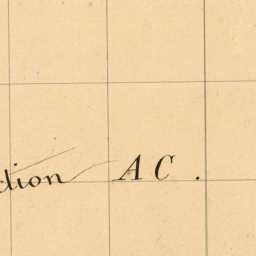 ction AC.